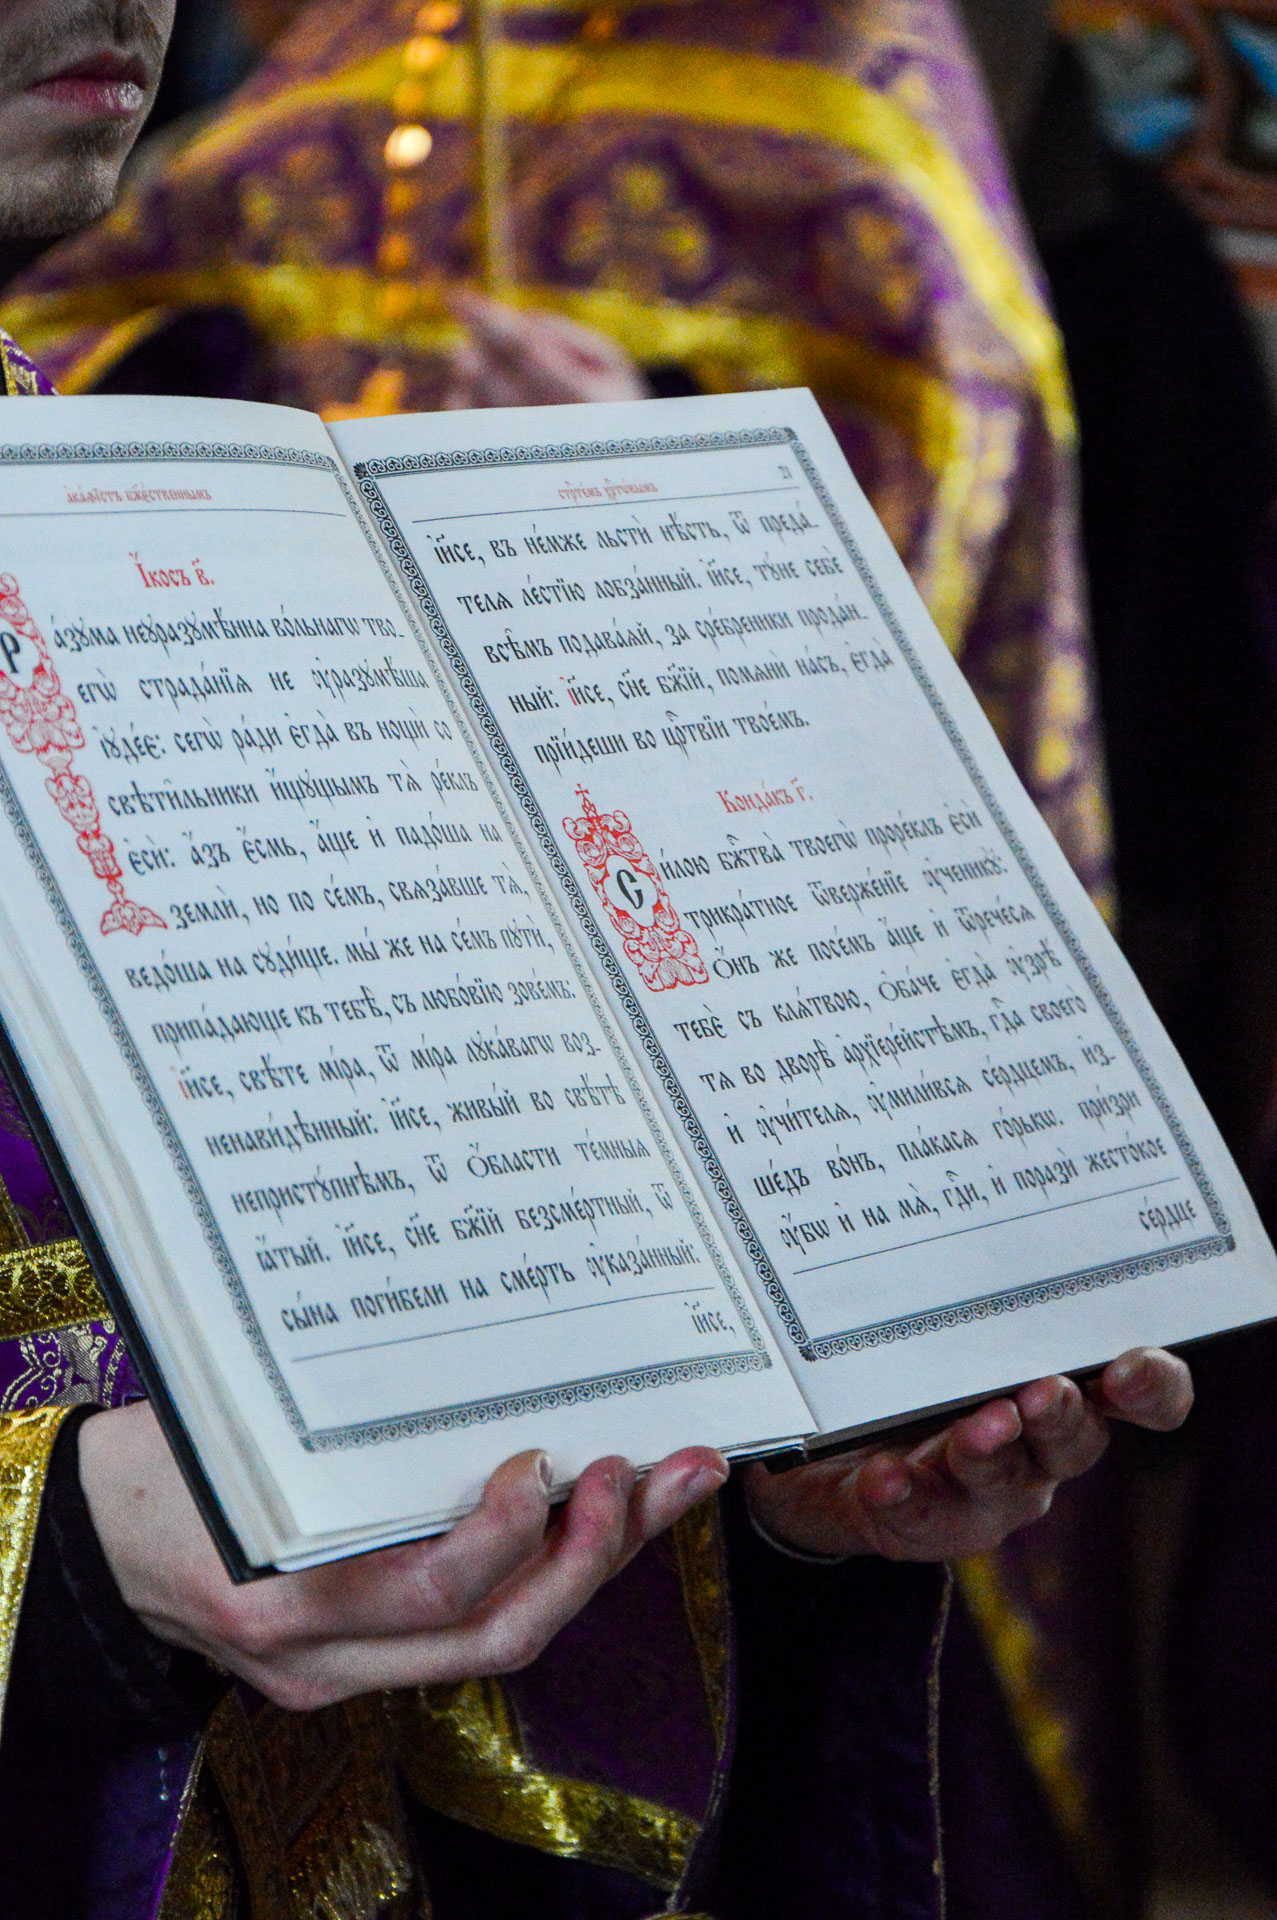 а҆ка́ѳістъ бж҃е́ственнымъ
І҆́косъ в҃.
Ра́зꙋма неꙋразꙋмѣ́нна во́льнагѡ тво-
егѡ̀ страда́нїѧ не ᲂу҆разꙋмѣ́ша
і҆ꙋде́є: сегѡ̀ ра́ди є҆гда̀ въ нощѝ со
свѣти̑льники и҆́щꙋщымъ тѧ̀ ре́клъ
є҆сѝ: а҆́зъ є҆́смь, а҆́ще и҆ падо́ша на
землѝ, но по се́мъ, свѧза́вше тѧ̀,
ведо́ша на сꙋди́ще. мы́ же на се́мъ пꙋтѝ,
припа́дающе къ тебѣ̀, съ любо́вїю зове́мъ:
І҆и҃се, свѣ́те мі́ра, ѿ мі́ра лꙋка́вагѡ воз-
ненави́дѣнный: і҆и҃се, живы́й во свѣ́тѣ
непристꙋ́пнѣмъ, ѿ ѻ҆́бласти те́мныѧ
ꙗ҆́тый. і҆и҃се, сн҃е бж҃їй безсме́ртный, ѿ
сы́на поги́бели на сме́рть ᲂу҆каза́нный:
і҆и҃се,
стрⷭ҇те́мъ хрⷭ҇тѡ́вымъ 21
і҆и҃се, въ не́мже льстѝ нѣ́сть, ѿ преда́-
телѧ ле́стїю лобза́нный. і҆и҃се, тꙋ́не себѐ
всѣ̑мъ подава́ѧй, за сре́бреники про́дан-
ный: і҆и҃се, сн҃е бж҃їй, помѧнѝ на́съ, є҆гда̀
прїи́деши во црⷭ҇твїи твое́мъ.
Конда́къ г҃.
Си́лою бжⷭ҇тва̀ твоегѡ̀ проре́клъ є҆сѝ
трикра́тное ѿверже́нїе ᲂу҆ченикꙋ̀:
ѻ҆́нъ же посе́мъ а҆́ще и҆ ѿрече́сѧ
тебє̀ съ клѧ́твою, ѻ҆ба́че є҆гда̀ ᲂу҆зрѣ̀
тѧ во дворѣ̀ а҆рхїере́йстѣмъ, гдⷭ҇а своего̀
и҆ ᲂу҆чи́телѧ, ᲂу҆мили́всѧ се́рдцемъ, и҆з-
ше́дъ во́нъ, пла́касѧ го́рькѡ. при́зри
ᲂу҆́бѡ и҆ на мѧ̀, гдⷭ҇и, и҆ поразѝ жесто́кое
се́рдце